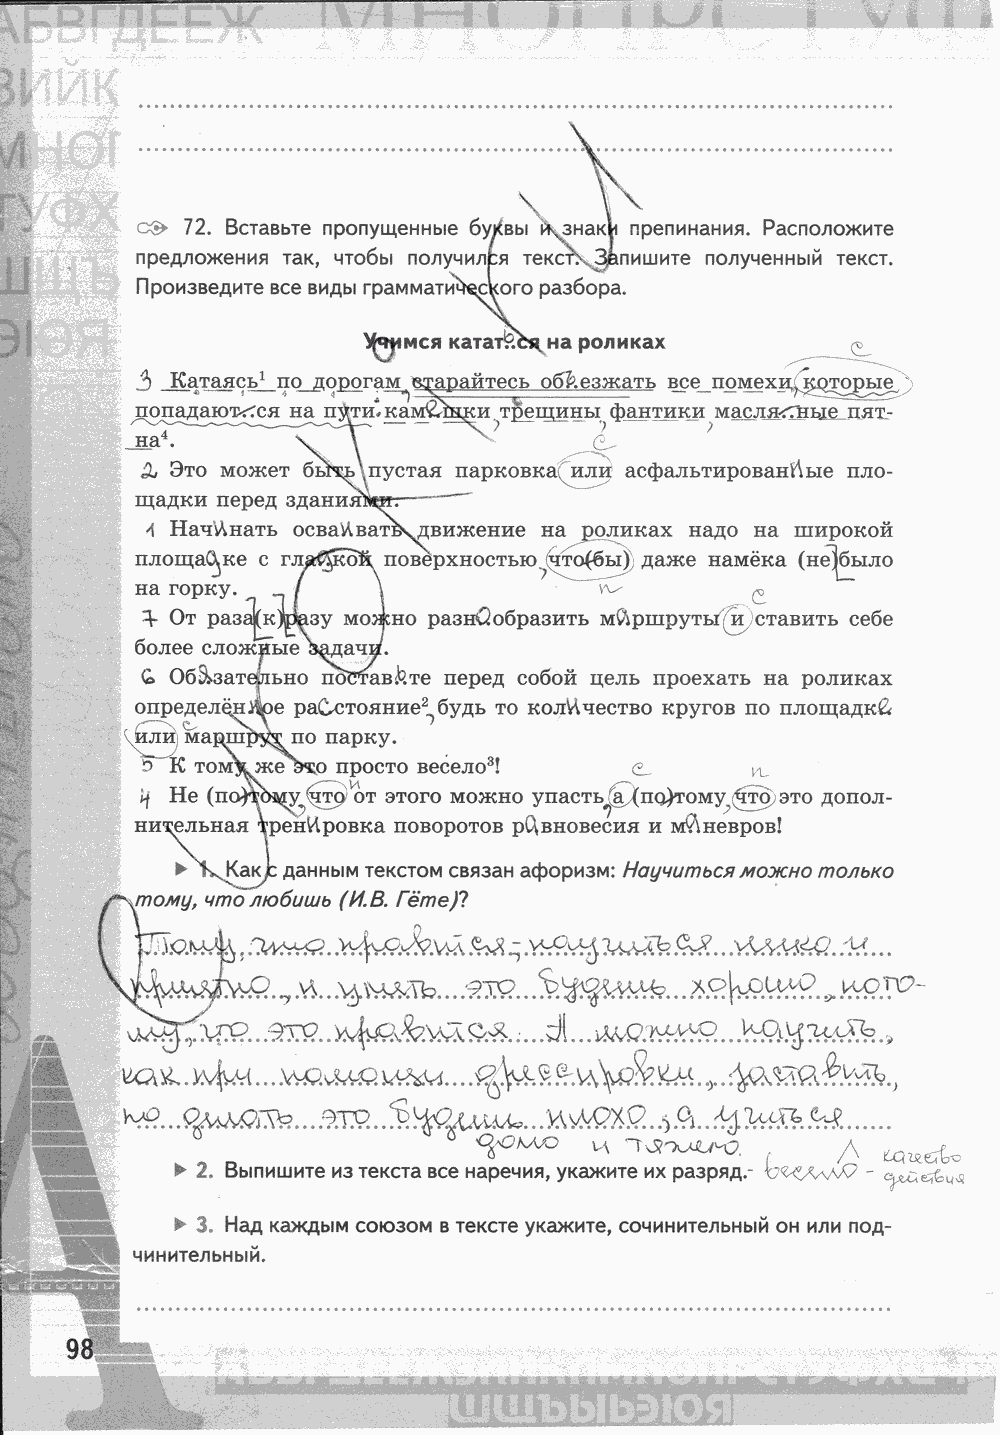 72. Вставьте пропущенные буквы и знаки препинания. Расположите
предложения так, чтобы получился текст. Запишите полученный текст.
Произведите все виды грамматического разбора.
Учимся кататься на роликах
3 Катаясь¹ по дорогам, старайтесь объезжать все помехи, которые
попадают..ся на пути: камешки, трещины, фантики, масля..ные пят-
на⁴.
2 Это может быть пустая парковка или асфальтированные пло-
щадки перед зданиями.
1 Начинать осваивать движение на роликах надо на широкой
площадке с гладкой поверхностью, что(бы) даже намёка (не) было
на горку.
7 От раза (к) разу можно разнообразить маршруты и ставить себе
более сложные задачи.
6 Обязательно поставьте перед собой цель проехать на роликах
определённое расстояние², будь то количество кругов по площадке
или маршрут по парку.
5 К тому же это просто весело³!
4 Не (по)тому, что от этого можно упасть, а (по)тому, что это допол-
нительная тренировка поворотов равновесия и маневров!
1. Как с данным текстом связан афоризм: Научиться можно только
тому, что любишь (И.В. Гёте)?
Тому, что нравится, научиться легко и
приятно, и уметь это будешь хорошо, пото-
му, что это нравится. А можно научить,
как при помощи дрессировки, заставить,
но делать это будешь плохо, а учиться
долго и тяжело.
2. Выпишите из текста все наречия, укажите их разряд. - весело - качество
действия
3. Над каждым союзом в тексте укажите, сочинительный он или под-
чинительный.
98
уроки